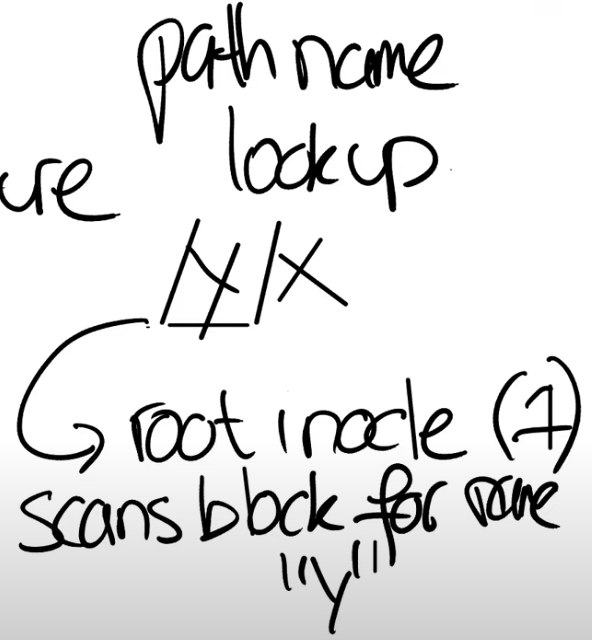 path name
lookup
ure
/y/x
root inode (1)
scans block for name
"y"